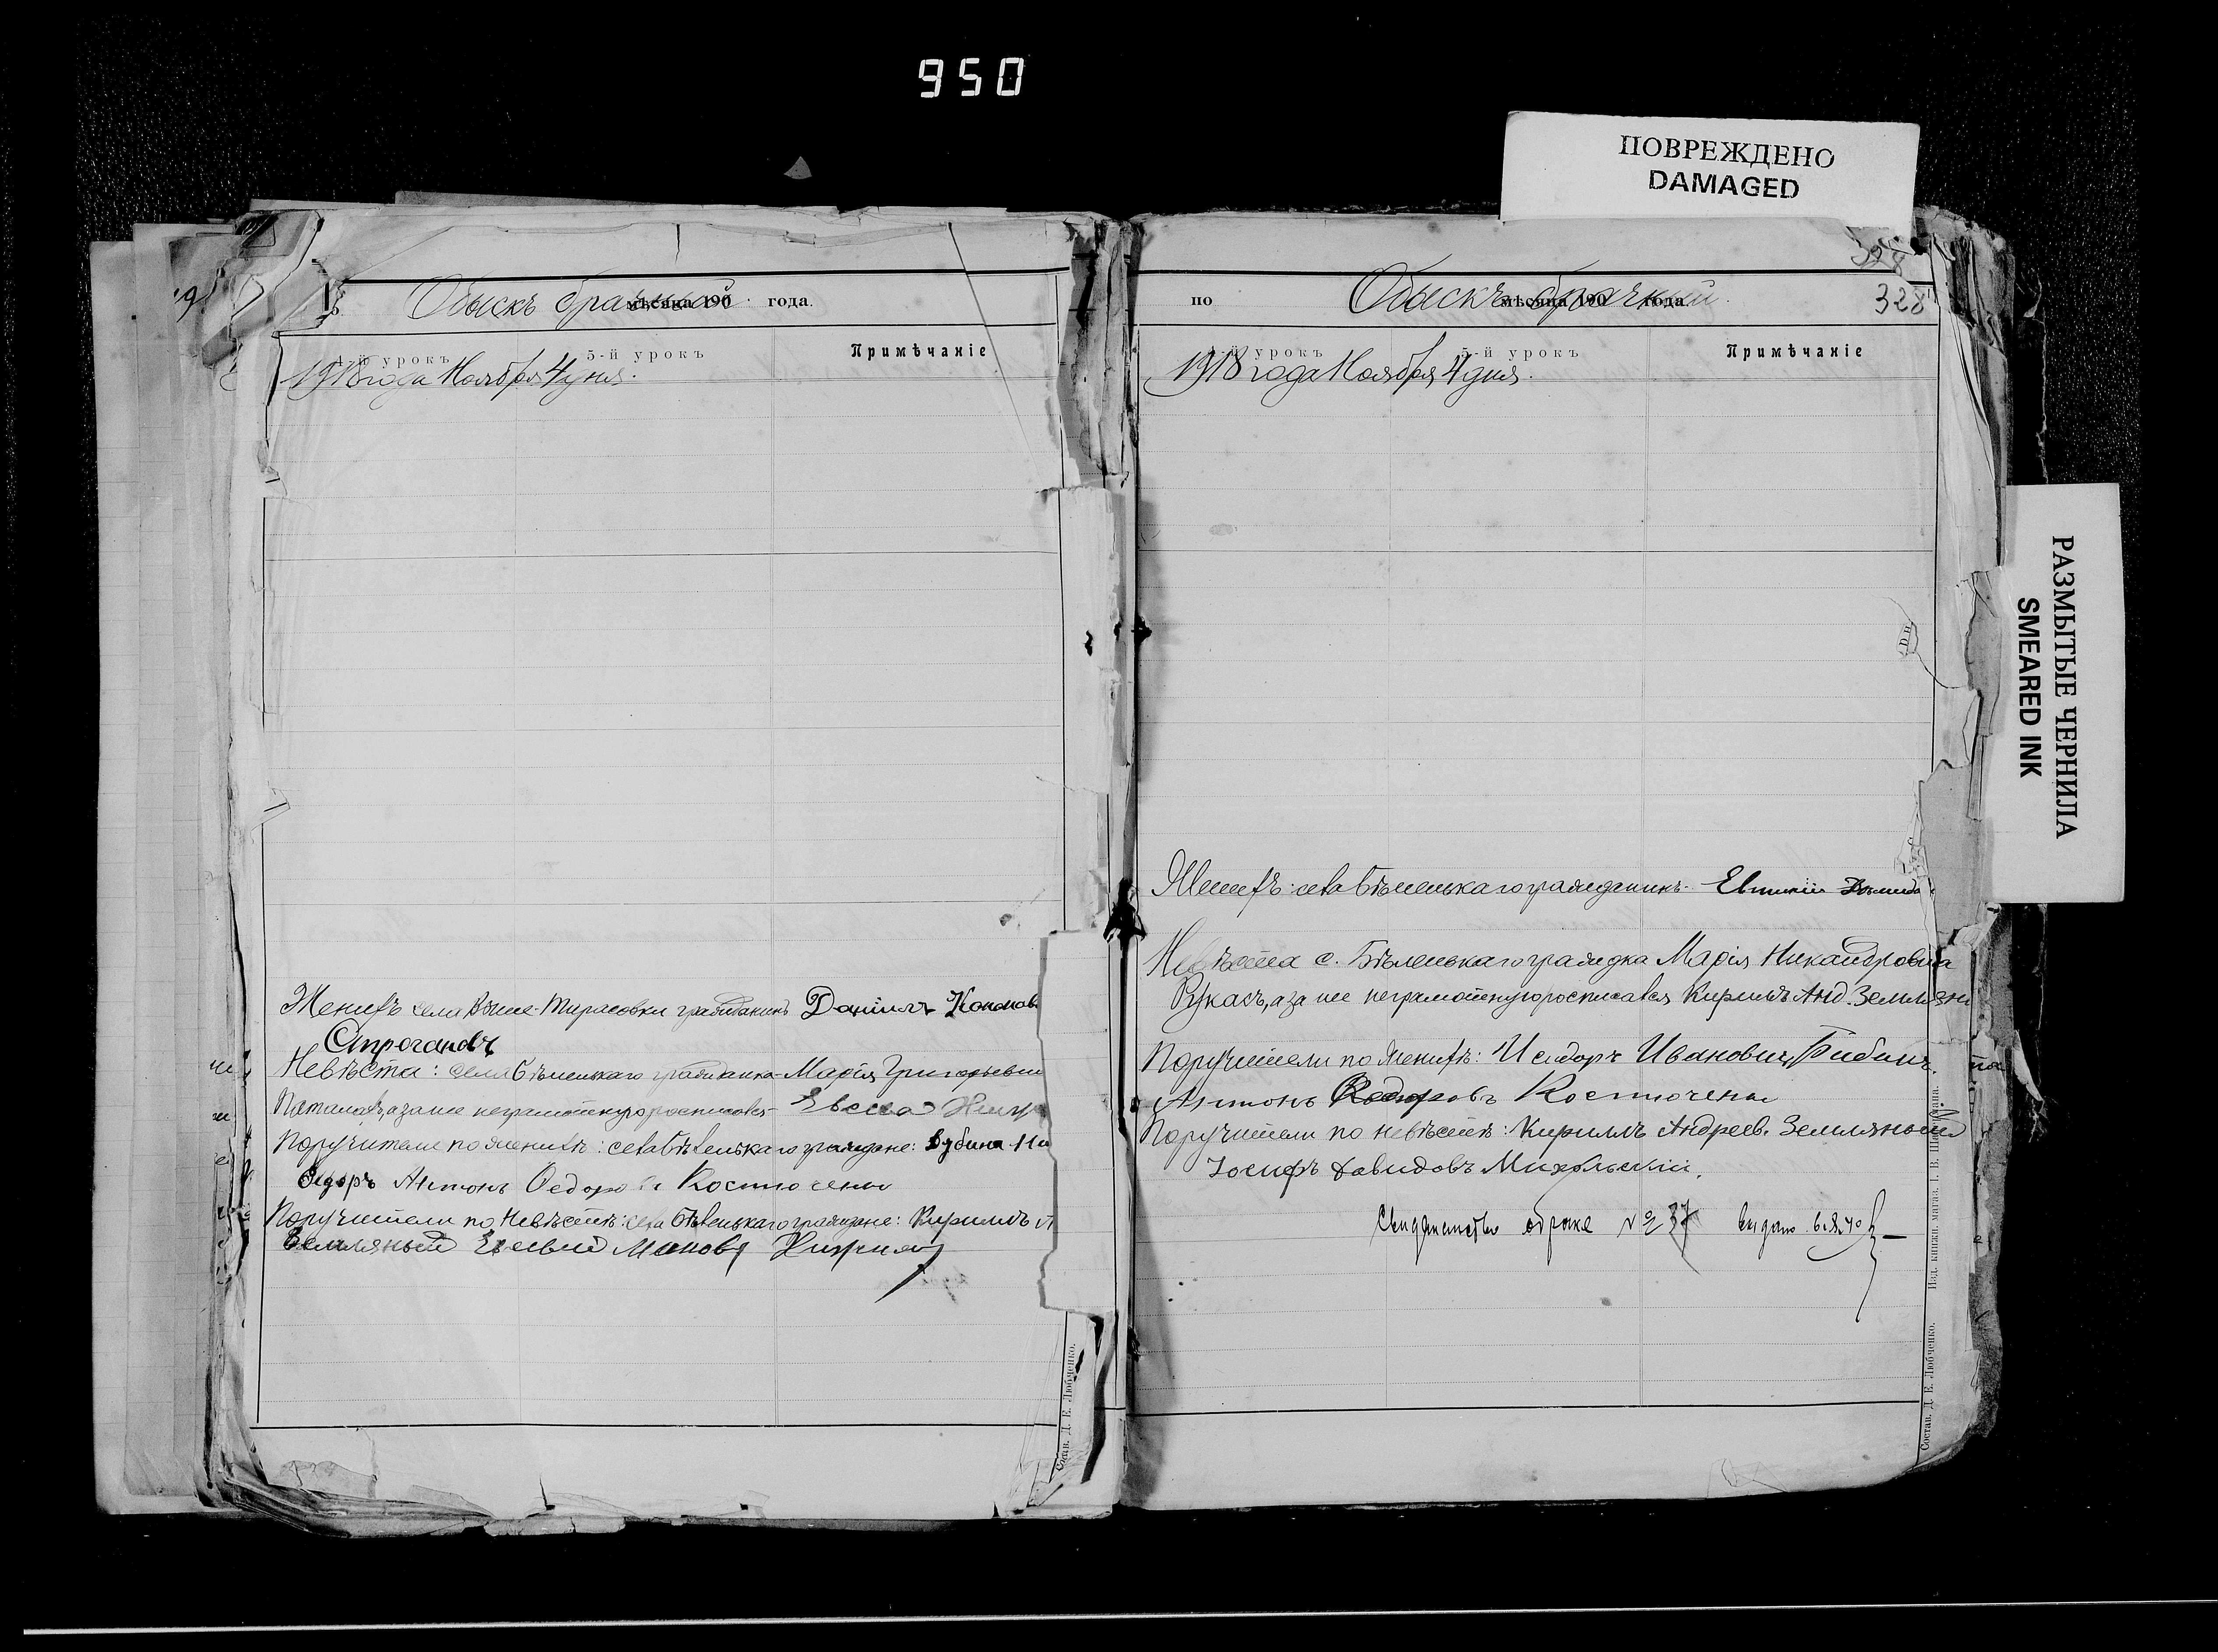 950
ПОВРЕЖДЕНО
DAMAGED
РАЗМЫТЫЕ ЧЕРНИЛА
SMEARED INK
Обыскъ брачный
мѣсяца 190 года.
4-й урокъ 5-й урокъ Примѣчаніе
1918 года Ноября 4 дня.
Женихъ села Выше-Тарасовки гражданинъ Даніилъ Кононов
Строгановъ
Невѣста: села Бѣленькаго гражданка Марія Григорьевна
а за нее неграмотную росписался
Поручители по женихѣ: села Бѣленькаго граждане:
Антонъ Федоровъ Косточены
Поручители по невѣстѣ: села Бѣленькаго граждане: Кириллъ
Земляный
Состав. Д. Е. Любченко.
328
328
по Обыскъ брачный
мѣсяца 190 года
4-й урокъ 5-й урокъ Примѣчаніе
1918 года Ноября 4 дня.
Женихъ: села Бѣленькаго гражданинъ
Невѣста с. Бѣленькаго гражд-ка Марія Никандровна
а за нее неграмотную росписался Кириллъ Анд. Земляны
Поручители по женихѣ: Исидоръ Ивановичъ
Антонъ Федоровъ Косточены
Поручители по невѣстѣ: Кириллъ Андреев. Земляный
Іосифъ Давидовъ
Свидѣтельство о бракѣ № 37 выдано
Состав. Д. Е. Любченко. Изд. книжн. магаз. І. В.